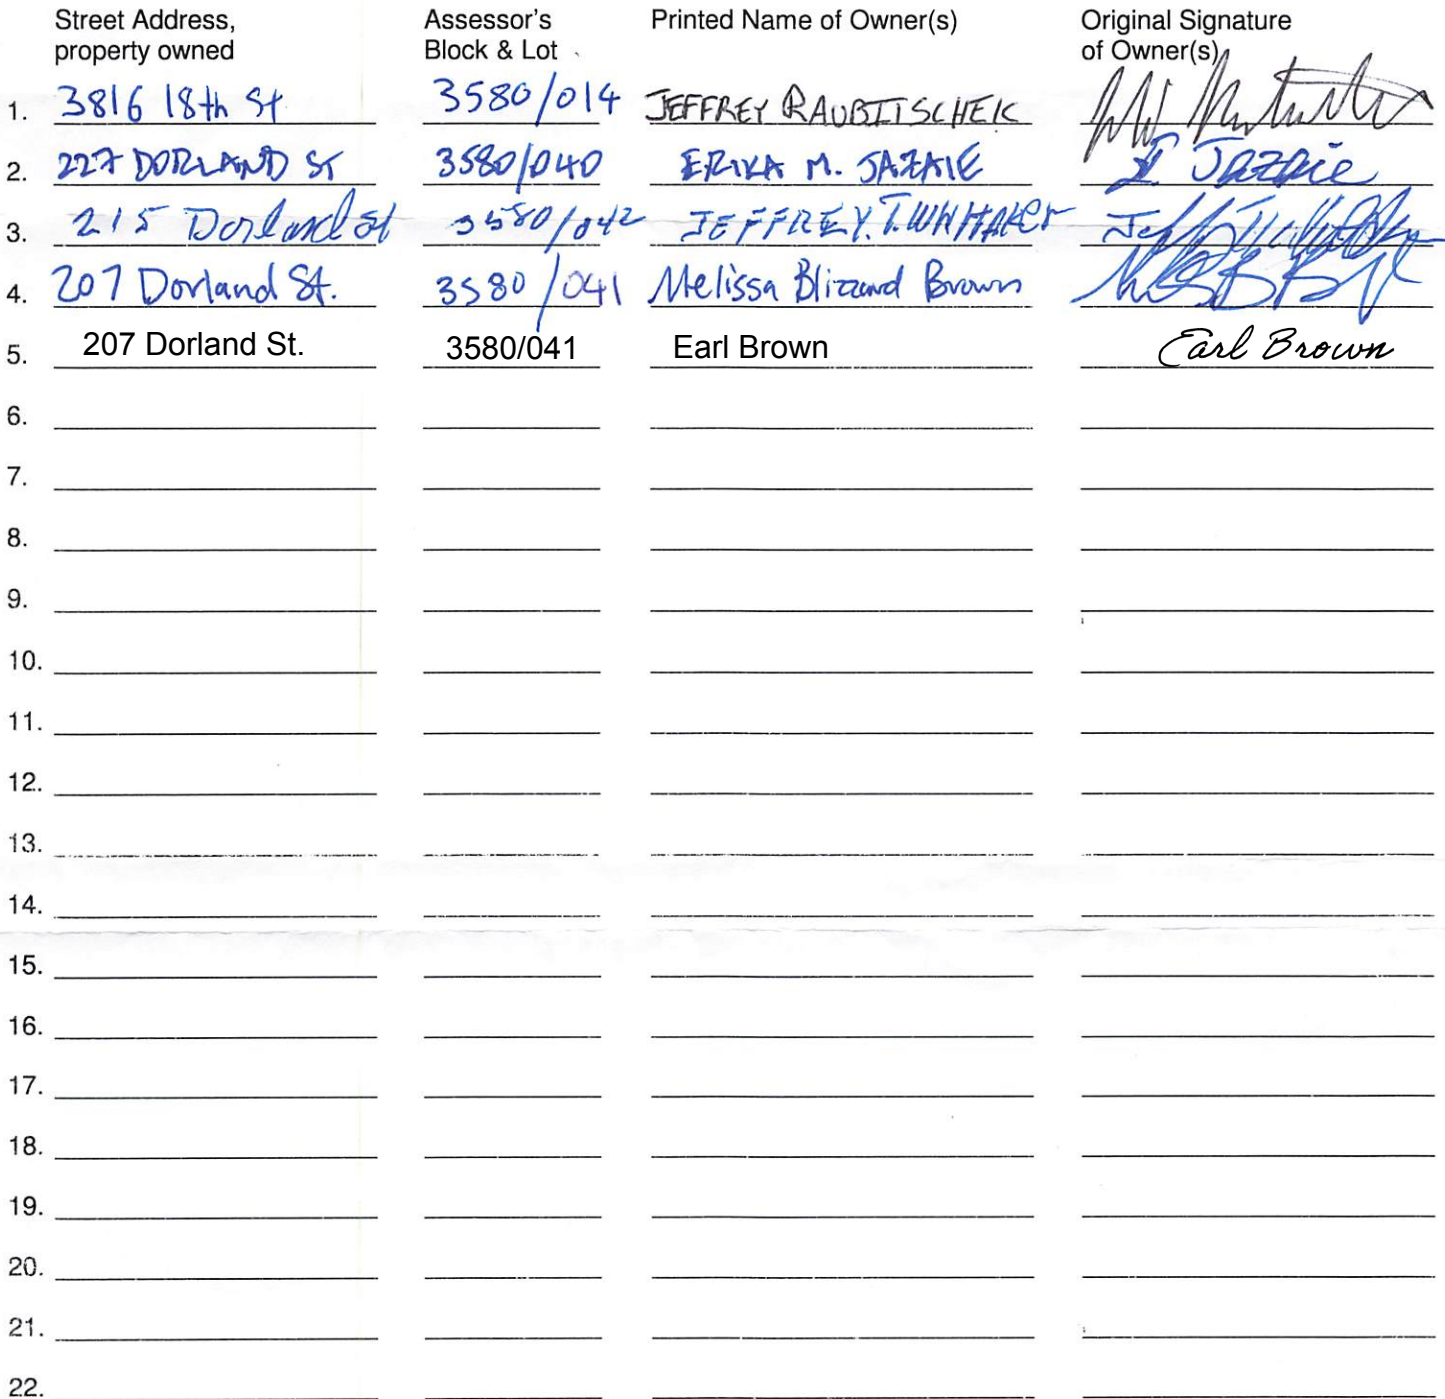 Street Address, Assessor's Printed Name of Owner(s) Original Signature
property owned Block & Lot of Owner(s)
1. 3816 18th St 3580/014 JEFFREY RAUBITSCHEK
2. 227 DORLAND ST 3580/040 ERIKA M. JAZAIE E. Jazaie
3. 215 Dorland St 3580/042 JEFFREY.T.WHHAKer
4. 207 Dorland St. 3580/041 Melissa Blizzard Brown
5. 207 Dorland St. 3580/041 Earl Brown Earl Brown
6.
7.
8.
9.
10.
11.
12.
13.
14.
15.
16.
17.
18.
19.
20.
21.
22.